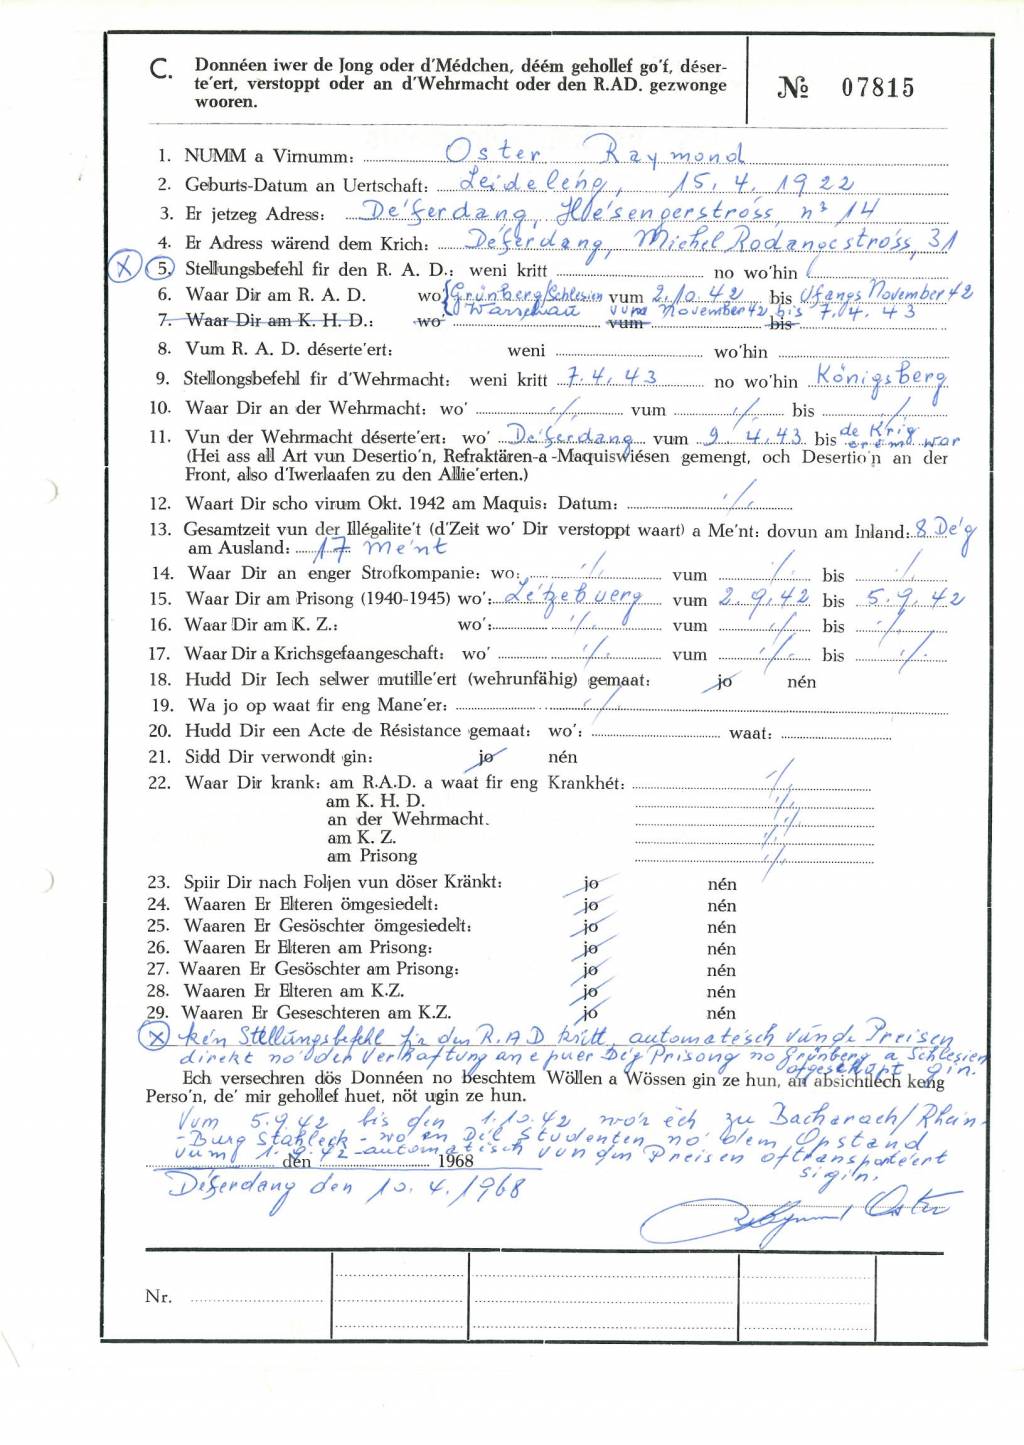 C. Donnéen iwer de Jong oder d'Médchen, déém gehollef go'f, déser-
te'ert, verstoppt oder an d'Wehrmacht oder den R.AD. gezwonge
wooren.
№ 07815
1. NUMM a Virnumm: Oster Raymond
2. Geburts-Datum an Uertschaft: Leideleng, 15.4.1922
3. Er jetzeg Adress: De'ferdang, Hle'sengerstross, n° 14
4. Er Adress wärend dem Krich: De'ferdang, Michel Rodangestross, 31
(X) 5. Stellungsbefehl fir den R. A. D.: weni kritt no wo'hin
6. Waar Dir am R. A. D. wo' Grünberg/Schlesien vum 2.10.42 bis Ufangs November 42
Warschau vum November 42 bis 7.4.43
7. Waar Dir am K. H. D.: wo' vum bis
8. Vum R. A. D. déserte'ert: weni wo'hin
9. Stellongsbefehl fir d'Wehrmacht: weni kritt 7.4.43 no wo'hin Königsberg
10. Waar Dir an der Wehrmacht: wo' ./. vum ./. bis ./.
11. Vun der Wehrmacht déserte'ert: wo' De'ferdang vum 9.4.43 bis de Krig
eröm war
(Hei ass all Art vun Desertio'n, Refraktären-a-Maquiswiésen gemengt, och Desertio'n an der
Front, also d'Iwerlaafen zu den Allie'erten.)
12. Waart Dir scho virum Okt. 1942 am Maquis: Datum: ./.
13. Gesamtzeit vun der Illégalite't (d'Zeit wo' Dir verstoppt waart) a Me'nt: dovun am Inland: 8 De'g
am Ausland: 17 Me'nt
14. Waar Dir an enger Strofkompanie: wo: ./. vum ./. bis ./.
15. Waar Dir am Prisong (1940-1945) wo': Letzebuerg vum 2.9.42 bis 5.9.42
16. Waar Dir am K. Z.: wo': ./. vum ./. bis ./.
17. Waar Dir a Krichsgefaangeschaft: wo' ./. vum ./. bis ./.
18. Hudd Dir Iech selwer mutille'ert (wehrunfähig) gemaat: jo nén
19. Wa jo op waat fir eng Mane'er: ./.
20. Hudd Dir een Acte de Résistance gemaat: wo': waat:
21. Sidd Dir verwondt gin: jo nén
22. Waar Dir krank: am R.A.D. a waat fir eng Krankhét: ./.
am K. H. D. ./.
an der Wehrmacht. ./.
am K. Z. ./.
am Prisong ./.
23. Spiir Dir nach Foljen vun döser Kränkt: jo nén
24. Waaren Er Elteren ömgesiedelt: jo nén
25. Waaren Er Gesöschter ömgesiedelt: jo nén
26. Waaren Er Elteren am Prisong: jo nén
27. Waaren Er Gesöschter am Prisong: jo nén
28. Waaren Er Elteren am K.Z. jo nén
29. Waaren Er Geseschteren am K.Z. jo nén
(X) kén Stellungsbefehl fir den R.A.D kritt, automatesch vun de Preisen
direkt no der Verhaftung an e puer De'g Prisong no Grünberg a Schlesien
ofgeschkart gin.
Ech versechren dös Donnéen no beschtem Wöllen a Wössen gin ze hun, an absichtlech keng
Perso'n, de' mir gehollef huet, nöt ugin ze hun.
Vum 5.9.42 bis den 1.10.42 wor ech zu Bacharach/Rhein-
-Burg Stahleck- wo en Dél Studenten no dem Opstand
vum 1.9.42 automatisch vun den Preisen oftransporte'ert
si gin.
den 1968
De'ferdang den 10.4.1968
Raymond Oster
Nr.